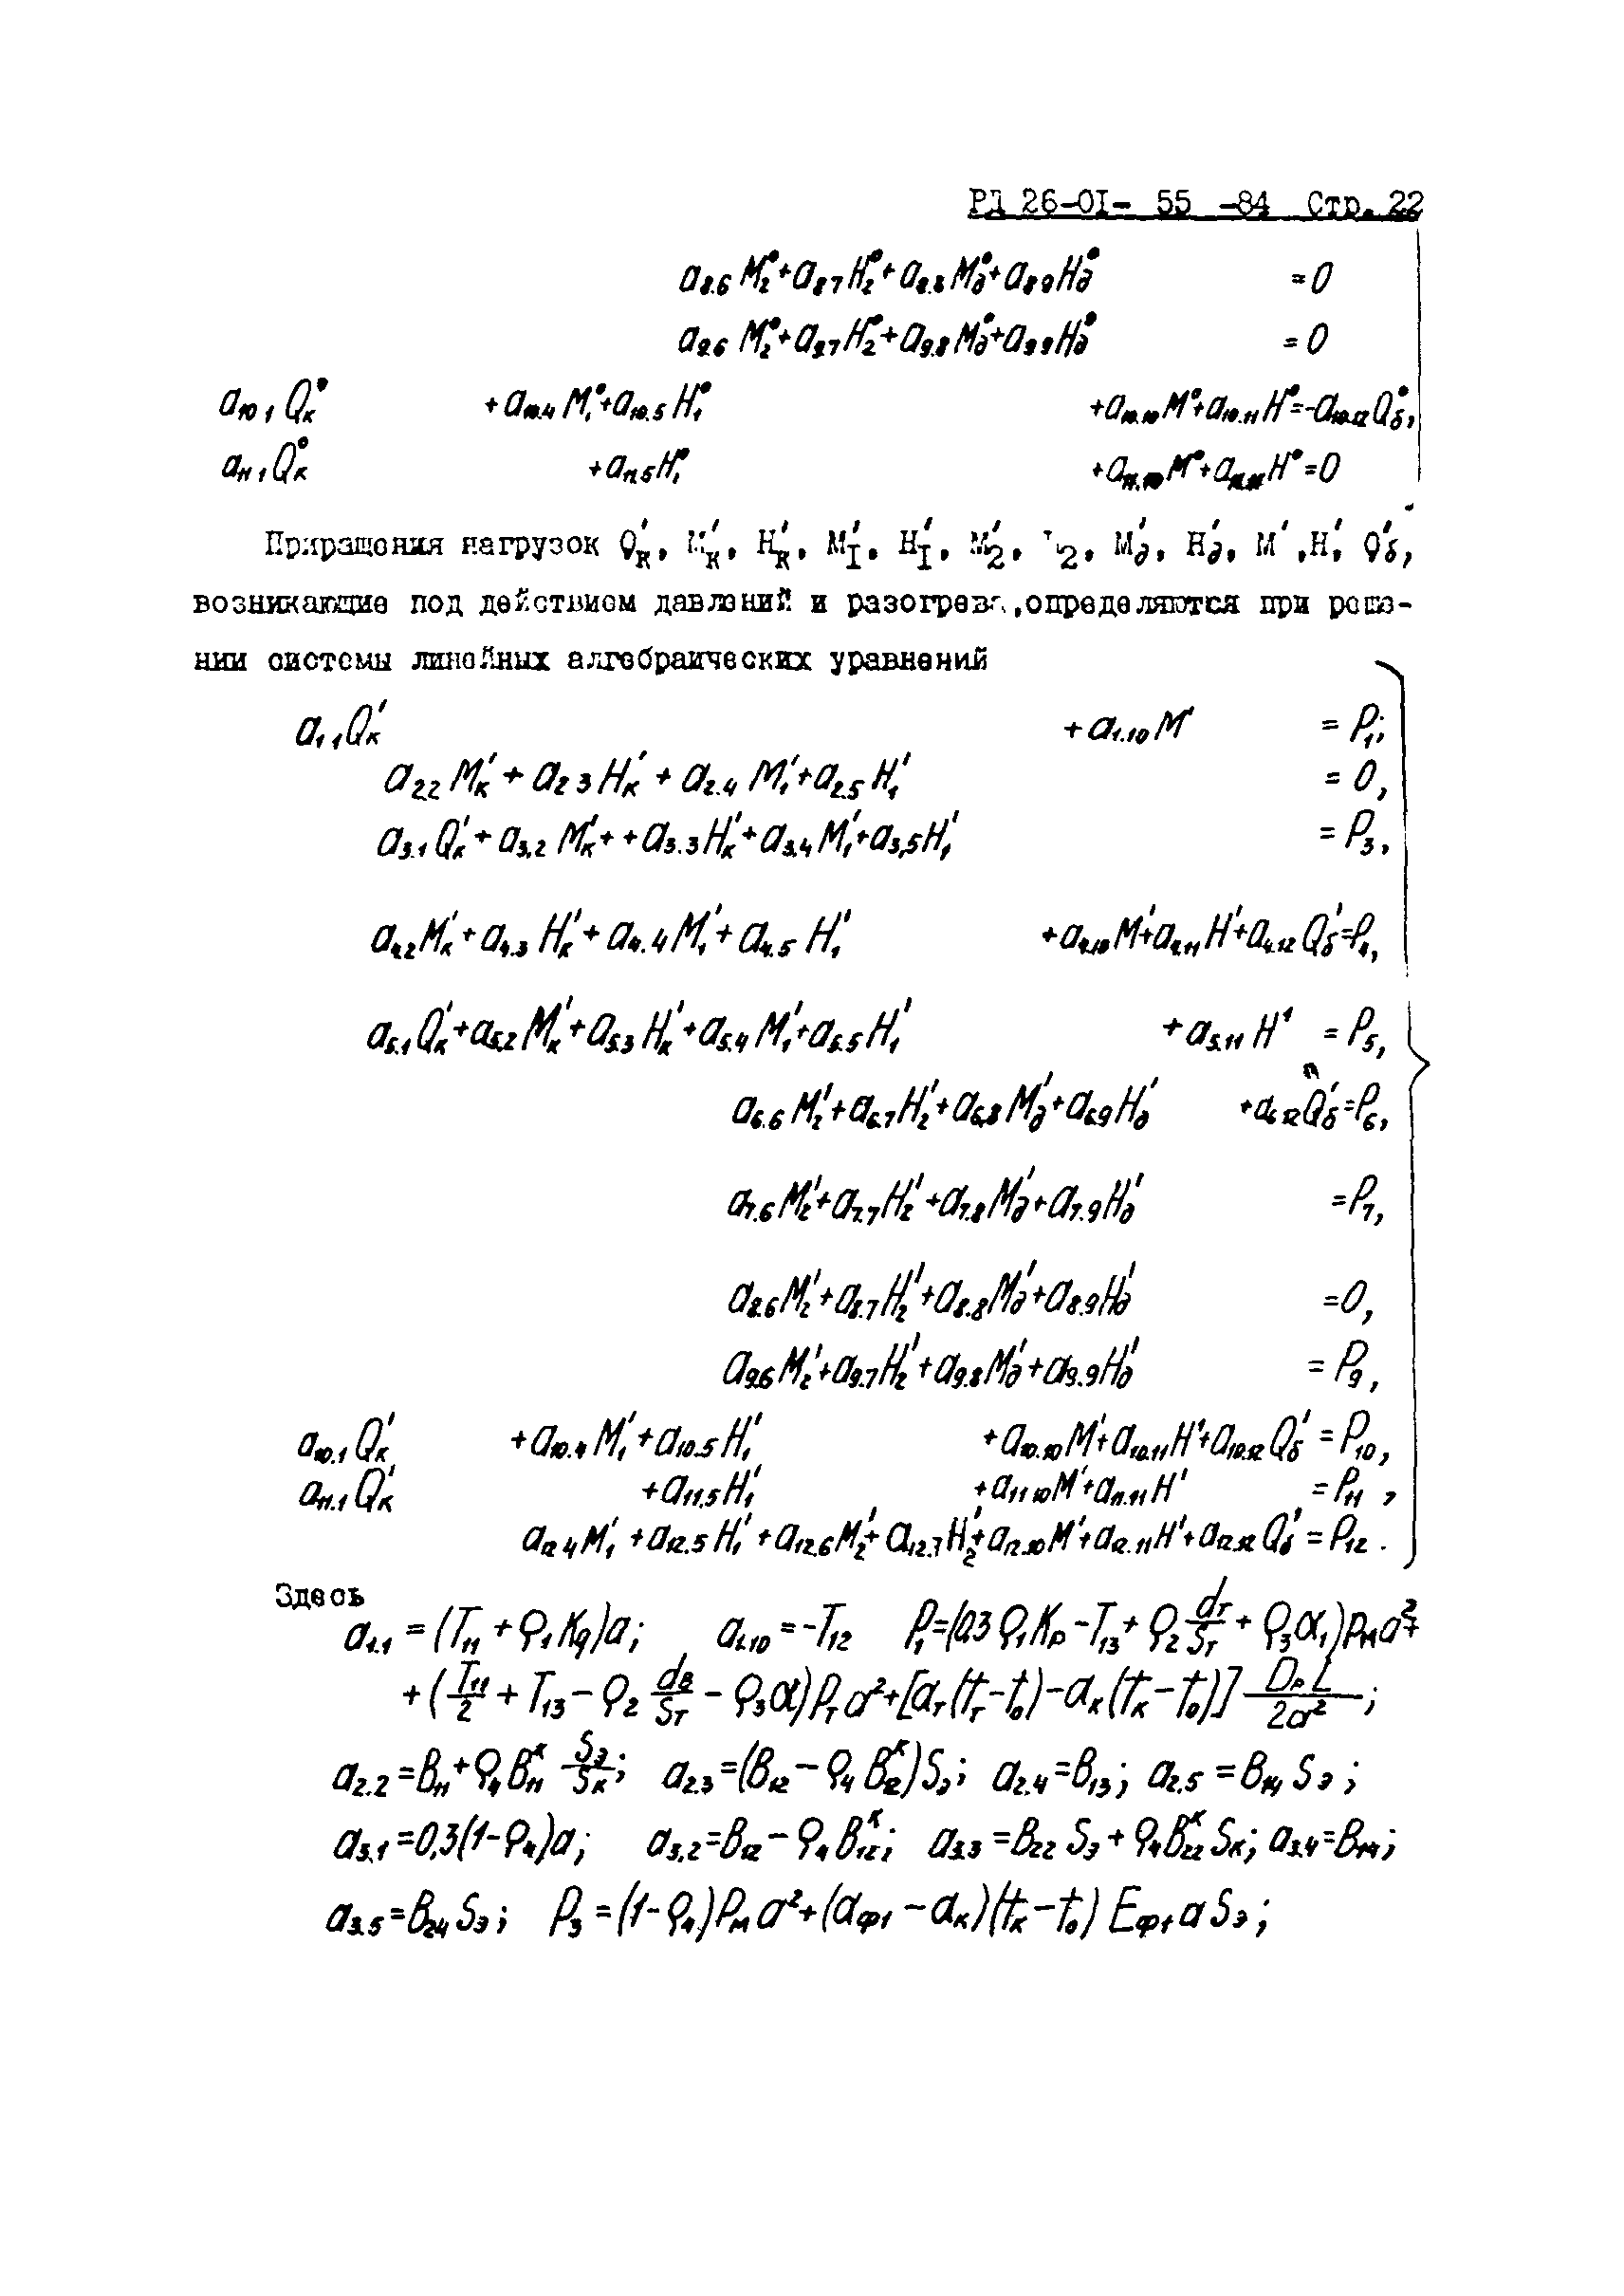 РД 26-01- 55 -84 Стр. 22
a₈.₆ M₂° + a₈.₇ H₂° + a₈.₈ M∂° + a₈.₉ H∂° = 0
a₉.₆ M₂° + a₉.₇ H₂° + a₉.₈ M∂° + a₉.₉ H∂° = 0
a₁₀.₁ Qк° + a₁₀.₄ M₁° + a₁₀.₅ H₁° + a₁₀.₁₀ M° + a₁₀.₁₁ H° = -a₁₀.₁₂ Qб°,
a₁₁.₁ Qк° + a₁₁.₅ H₁° + a₁₁.₁₀ M° + a₁₁.₁₁ H° = 0
Приращения нагрузок Qк′, Mк′, Hк′, M₁′, H₁′, M₂′, ₂, M∂′, H∂′, M′, H′, Qб′,
возникающие под действием давлений и разогрева, определяются при реше-
нии системы линейных алгебраических уравнений
a₁.₁ Qк′ + a₁.₁₀ M′ = P₁;
a₂.₂ Mк′ + a₂.₃ Hк′ + a₂.₄ M₁′ + a₂.₅ H₁′ = 0,
a₃.₁ Qк′ + a₃.₂ Mк′ + + a₃.₃ Hк′ + a₃.₄ M₁′ + a₃.₅ H₁′ = P₃,
a₄.₂ Mк′ + a₄.₃ Hк′ + a₄.₄ M₁′ + a₄.₅ H₁′ + a₄.₁₀ M′ + a₄.₁₁ H′ + a₄.₁₂ Qб′ = P₄,
a₅.₁ Qк′ + a₅.₂ Mк′ + a₅.₃ Hк′ + a₅.₄ M₁′ + a₅.₅ H₁′ + a₅.₁₁ H′ = P₅,
a₆.₆ M₂′ + a₆.₇ H₂′ + a₆.₈ M∂′ + a₆.₉ H∂′ + a₆.₁₂ Qб′ = P₆,
a₇.₆ M₂′ + a₇.₇ H₂′ + a₇.₈ M∂′ + a₇.₉ H∂′ = P₇,
a₈.₆ M₂′ + a₈.₇ H₂′ + a₈.₈ M∂′ + a₈.₉ H∂′ = 0,
a₉.₆ M₂′ + a₉.₇ H₂′ + a₉.₈ M∂′ + a₉.₉ H∂′ = P₉,
a₁₀.₁ Qк′ + a₁₀.₄ M₁′ + a₁₀.₅ H₁′ + a₁₀.₁₀ M′ + a₁₀.₁₁ H′ + a₁₀.₁₂ Qб′ = P₁₀,
a₁₁.₁ Qк′ + a₁₁.₅ H₁′ + a₁₁.₁₀ M′ + a₁₁.₁₁ H′ = P₁₁,
a₁₂.₄ M₁′ + a₁₂.₅ H₁′ + a₁₂.₆ M₂′ + a₁₂.₇ H₂′ + a₁₂.₁₀ M′ + a₁₂.₁₁ H′ + a₁₂.₁₂ Qб′ = P₁₂.
Здесь
a₁.₁ = (T₁₁ + ρ₁ Kq)a; a₁.₁₀ = -T₁₂ P₁ = (0,3 ρ₁ Kр - T₁₃ + ρ₂ dт/Sт + ρ₃ α₁) Pм a² +
+ (T₁₁/2 + T₁₃ - ρ₂ dв/Sт - ρ₃ α) Pт a² + [αт(tт - t₀) - αк(tк - t₀)] Dр L/2a²;
a₂.₂ = B₁₁ + ρ₄ B₁₁ᴷ Sэ/Sк; a₂.₃ = (B₁₂ - ρ₄ B₁₂ᴷ) Sэ; a₂.₄ = B₁₃; a₂.₅ = B₁₄ Sэ;
a₃.₁ = 0,3(1 - ρ₄)a; a₃.₂ = B₁₂ - ρ₄ B₁₂ᴷ; a₃.₃ = B₂₂ Sэ + ρ₄ B₂₂ᴷ Sк; a₃.₄ = B₁₄;
a₃.₅ = B₂₄ Sэ; P₃ = (1 - ρ₄) Pм a² + (αф₁ - αк)(tк - t₀) Eф₁ a Sэ;